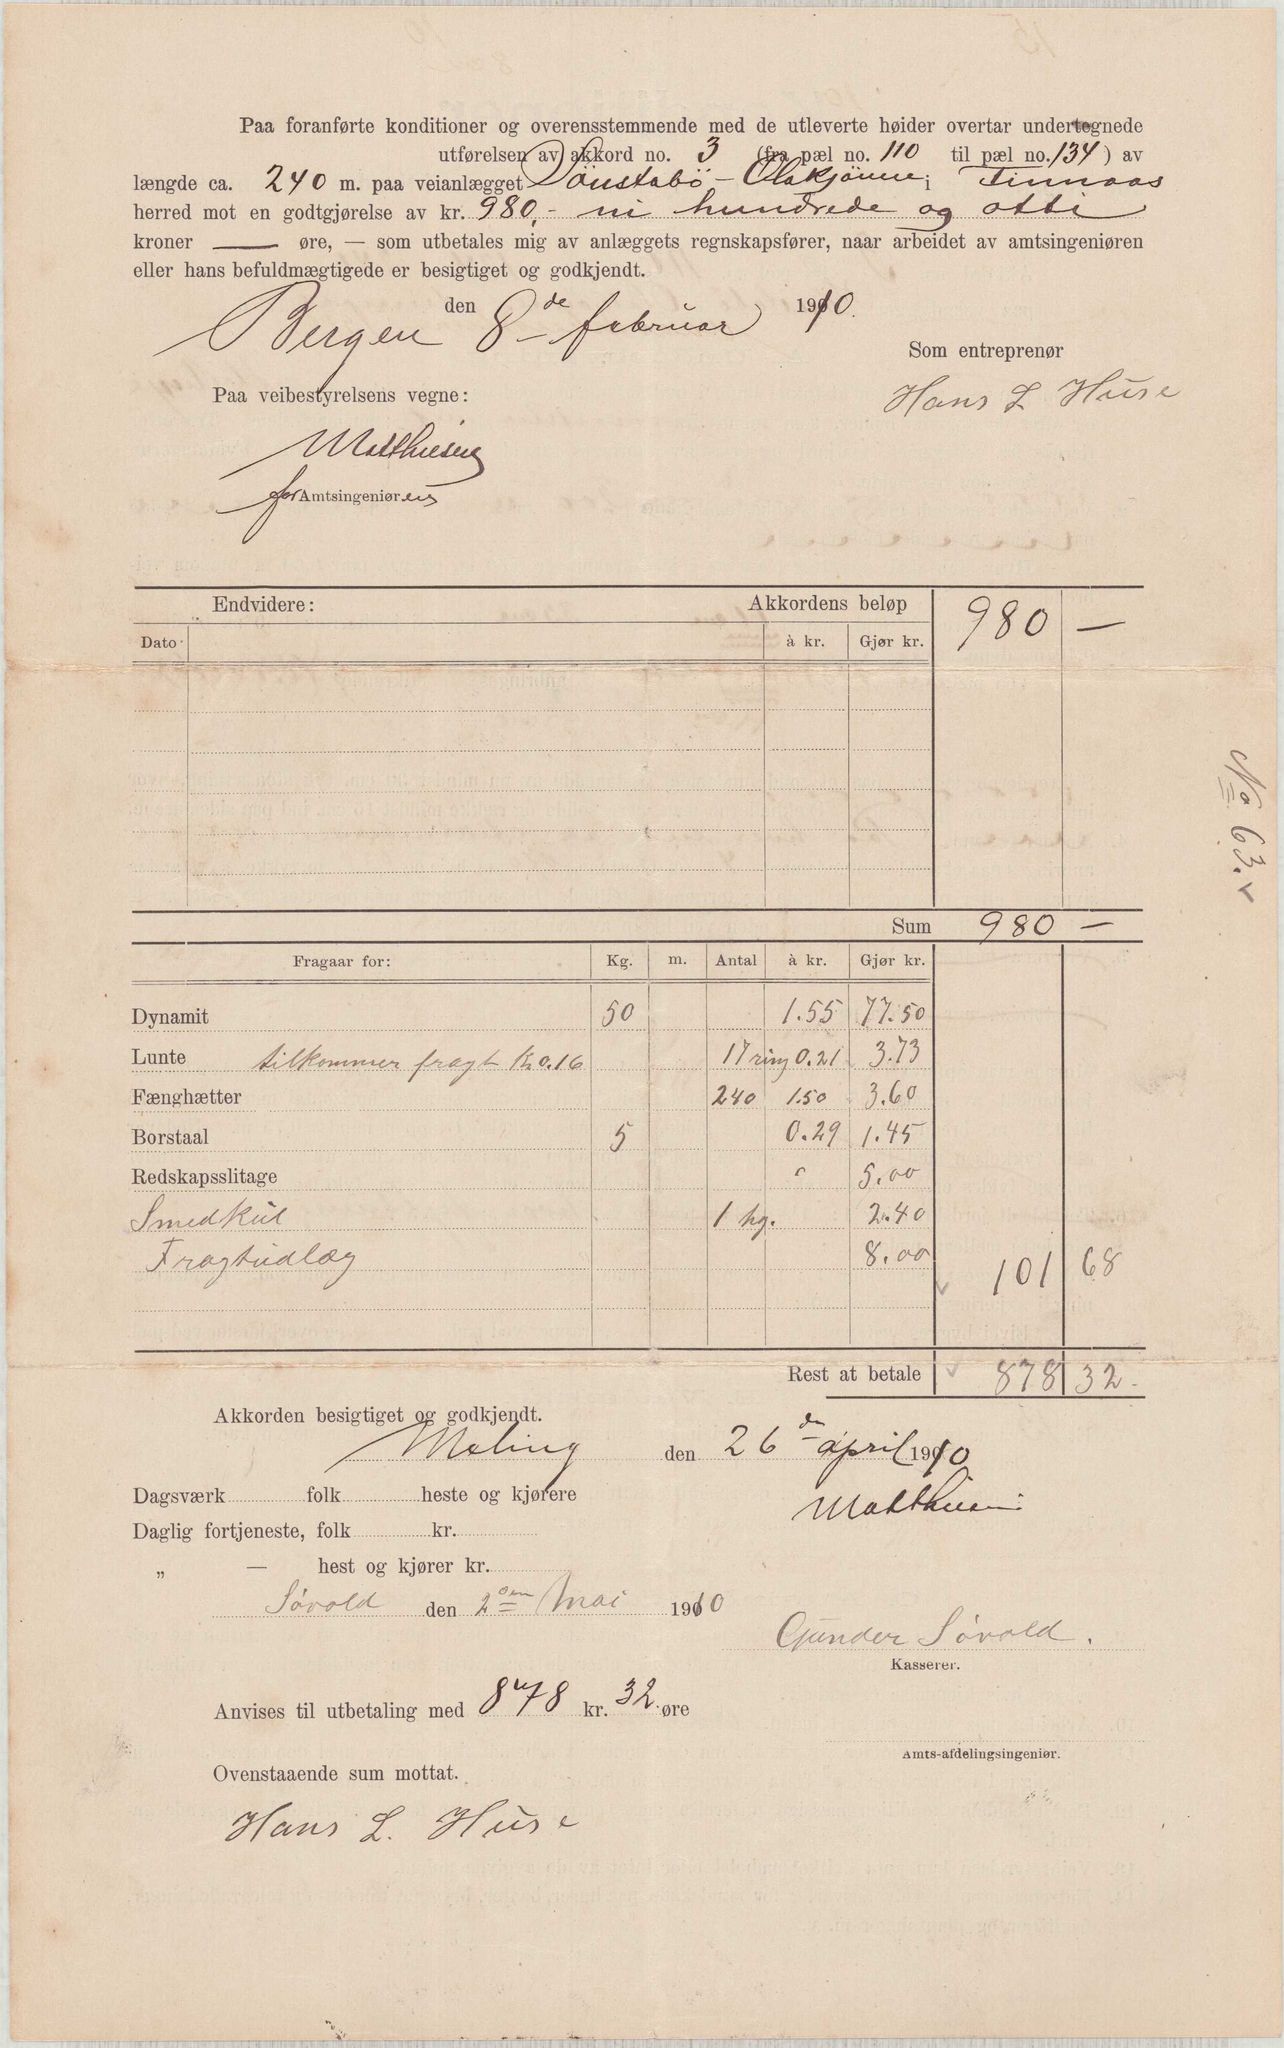 Paa foranførte konditioner og overensstemmende med de utleverte høider overtar undertegnede
utførelsen av akkord no. 3 (fra pæl no. 110 til pæl no. 134) av
længde ca. 240 m. paa veianlægget Sönstabö - i Finnaas
herred mot en godtgjørelse av kr. 980,- ni hundrede og otti
kroner — øre, — som utbetales mig av anlæggets regnskapsfører, naar arbeidet av amtsingeniøren
eller hans befuldmægtigede er besigtiget og godkjendt.
Bergen den 8de februar 1910.
Som entreprenør
Hans L Huse
Paa veibestyrelsens vegne:
Matthiesen
for Amtsingeniøren
Endvidere: Akkordens beløp 980 —
Dato à kr. Gjør kr.
Sum 980 —
Fragaar for: Kg. m. Antal à kr. Gjør kr.
Dynamit 50 1.55 77.50
Lunte tilkommer fragt Kr 0.16 17 ring 0.21 3.73
Fænghætter 240 1.50 3.60
Borstaal 5 0.29 1.45
Redskapsslitage " 5.00
Smedkul 1 hg. 2.40
Fragtudlæg 8.00 101 68
Rest at betale 878 32.
Akkorden besigtiget og godkjendt.
Meling den 26de april 1910
Matthiesen
Dagsværk folk heste og kjørere
Daglig fortjeneste, folk kr.
„ — hest og kjører kr.
Søvold den 2den Mai 1910
Gunder Søvold.
Kasserer.
Anvises til utbetaling med 878 kr. 32 øre
Amts-afdelingsingeniør.
Ovenstaaende sum mottat.
Hans L. Huse
No 63.